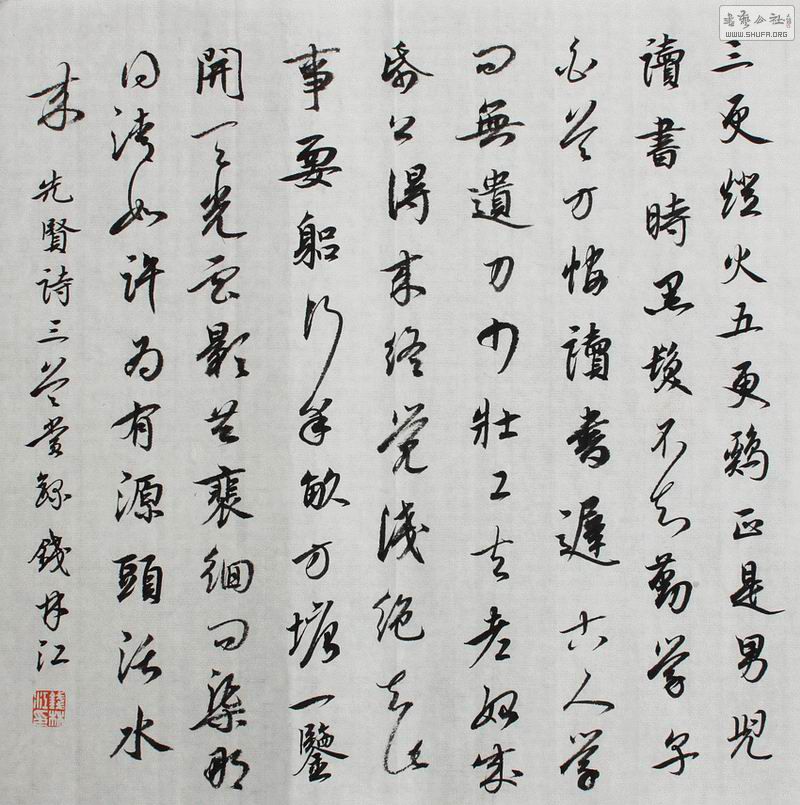 書藝公社
WWW.SHUFA.ORG
三更燈火五更鷄正是男兒
讀書時黑髮不知勤學早
白首方悔讀書遲古人學
問無遺力少壯工夫老始成
紙上得來終覺淺絕知此
事要躬行半畝方塘一鑒
開天光雲影共裵徊問渠那
得清如許為有源頭活水
來
先賢詩三首錄錢林江